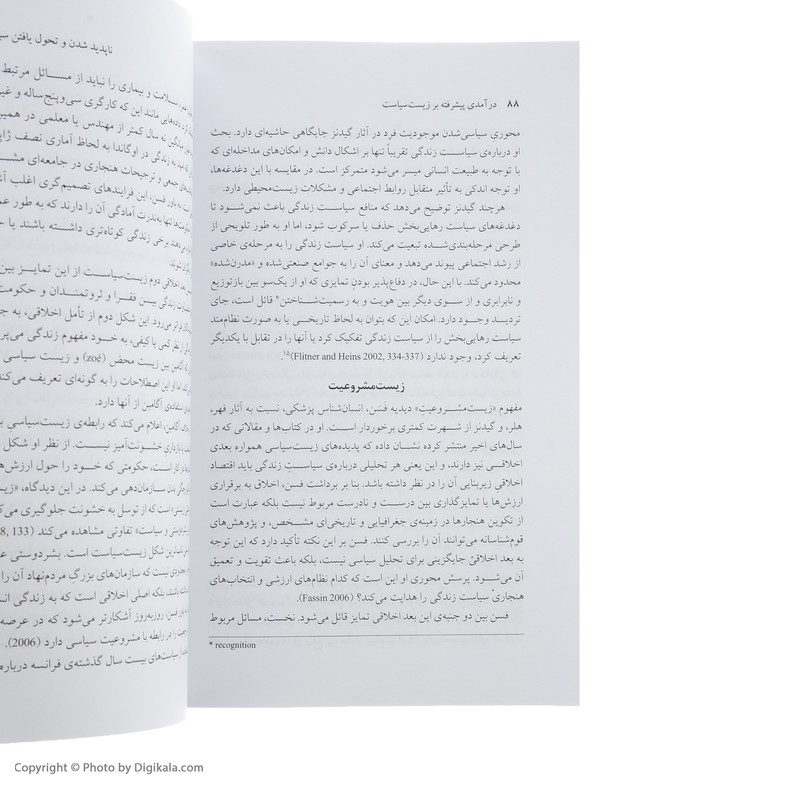 ۸۸ درآمدی پیشرفته بر زیست‌سیاست
محوریِ سیاسی‌شدن موجودیت فرد در آثار گیدنز جایگاهی حاشیه‌ای دارد. بحث
او درباره‌ی سیاست زندگی تقریباً تنها بر اشکال دانش و امکان‌های مداخله‌ای که
با توجه به طبیعت انسانی میسر می‌شود متمرکز است. در مقایسه با این دغدغه‌ها،
او توجه اندکی به تأثیر متقابل روابط اجتماعی و مشکلات زیست‌محیطی دارد.
هرچند گیدنز توضیح می‌دهد که منافع سیاست زندگی باعث نمی‌شود تا
دغدغه‌های سیاست رهایی‌بخش حذف یا سرکوب شود، اما او به طور تلویحی از
طرحی مرحله‌بندی‌شده تبعیت می‌کند. او سیاست زندگی را به مرحله‌ی خاصی
از رشد اجتماعی پیوند می‌دهد و معنای آن را به جوامع صنعتی‌شده و «مدرن‌شده»
محدود می‌کند. با این حال، در دفاع‌پذیر بودنِ تمایزی که او از یک‌سو بین بازتوزیع
و نابرابری و از سوی دیگر بین هویت و به رسمیت‌شناختن* قائل است، جای
تردید وجود دارد. امکان این که بتوان به لحاظ تاریخی یا به صورت نظام‌مند
سیاست رهایی‌بخش را از سیاست زندگی تفکیک کرد یا آنها را در تقابل با یکدیگر
تعریف کرد، وجود ندارد (Flitner and Heins 2002, 334-337).¹⁵
زیست‌مشروعیت
مفهوم «زیست‌مشروعیتِ» دیدیه فَسَن، انسان‌شناس پزشکی، نسبت به آثار فهر،
هلر، و گیدنز از شهرت کمتری برخوردار است. او در کتاب‌ها و مقالاتی که در
سال‌های اخیر منتشر کرده نشان داده که پدیده‌های زیست‌سیاسی همواره بعدی
اخلاقی نیز دارند، و این یعنی هر تحلیلی درباره‌ی سیاستِ زندگی باید اقتصاد
اخلاقی زیربنایی آن را در نظر داشته باشد. بنا بر برداشت فسن، اخلاق به برقراری
ارزش‌ها یا تمایزگذاری بین درست و نادرست مربوط نیست بلکه عبارت است
از تکوین هنجارها در زمینه‌ی جغرافیایی و تاریخی‌ای مشخص، و پژوهش‌های
قوم‌شناسانه می‌توانند آن را بررسی کنند. فسن بر این نکته تأکید دارد که این توجه
به بعد اخلاقیْ جایگزینی برای تحلیل سیاسی نیست، بلکه باعث تقویت و تعمیق
آن می‌شود. پرسش محوری او این است که کدام نظام‌های ارزشی و انتخاب‌های
هنجاریْ سیاست زندگی را هدایت می‌کند؟ (Fassin 2006).
فسن بین دو جنبه‌ی این بعد اخلاقی تمایز قائل می‌شود. نخست، مسائل مربوط
* recognition
ناپدید شدن و تحول یافتن
سلامت و بیماری را نباید از مسائل مرتبط
مانند این که کارگری سی‌وپنج‌ساله و
نه سال کمتر از مهندس یا معلمی در همین
به زندگی در اوگاندا به لحاظ آماری نصف
جمعی و ترجیحات هنجاری در جامعه‌ای
باور فسن، این فرایندهای تصمیم‌گری اغلب
تنها به‌ندرت آمادگی آن را دارند که به طور
برخی زندگی کوتاه‌تری داشته باشند یا
اخلاقی دوم زیست‌سیاست از این تمایز بین
زندگی بین فقرا و ثروتمندان و حکومت
فراتر می‌رود. این شکل دوم از تأمل اخلاقی، به
از نظر کمی یا کیفی، به خود مفهوم زندگی
آگامبن بین زیست محض (zoé) و زیست سیاسی
اما او این اصطلاحات را به گونه‌ای تعریف می‌کند
استفاده‌ی آگامبن از آنها دارد.
آگامبن، اعلام می‌کند که رابطه‌ی زیست‌سیاسی
خشونت‌آمیز نیست. از نظر او شکل
در کار است، حکومتی که خود را حول ارزش‌های
بدن سازمان‌دهی می‌کند. در این دیدگاه،
است که از توسل به خشونت جلوگیری
و سیاست» تفاوتی مشاهده می‌کند (133
شکل زیست‌سیاست است. بشردوستی
نیست که سازمان‌های بزرگِ مردم‌نهاد آن را
باشند، بلکه اصلی اخلاقی است که به زندگی
فسن، روزبه‌روز آشکارتر می‌شود که در عرصه
در رابطه با مشروعیت سیاسی دارد (2006).
از سیاست‌های بیست سال گذشته‌ی فرانسه درباره
Copyright © Photo by Digikala.com